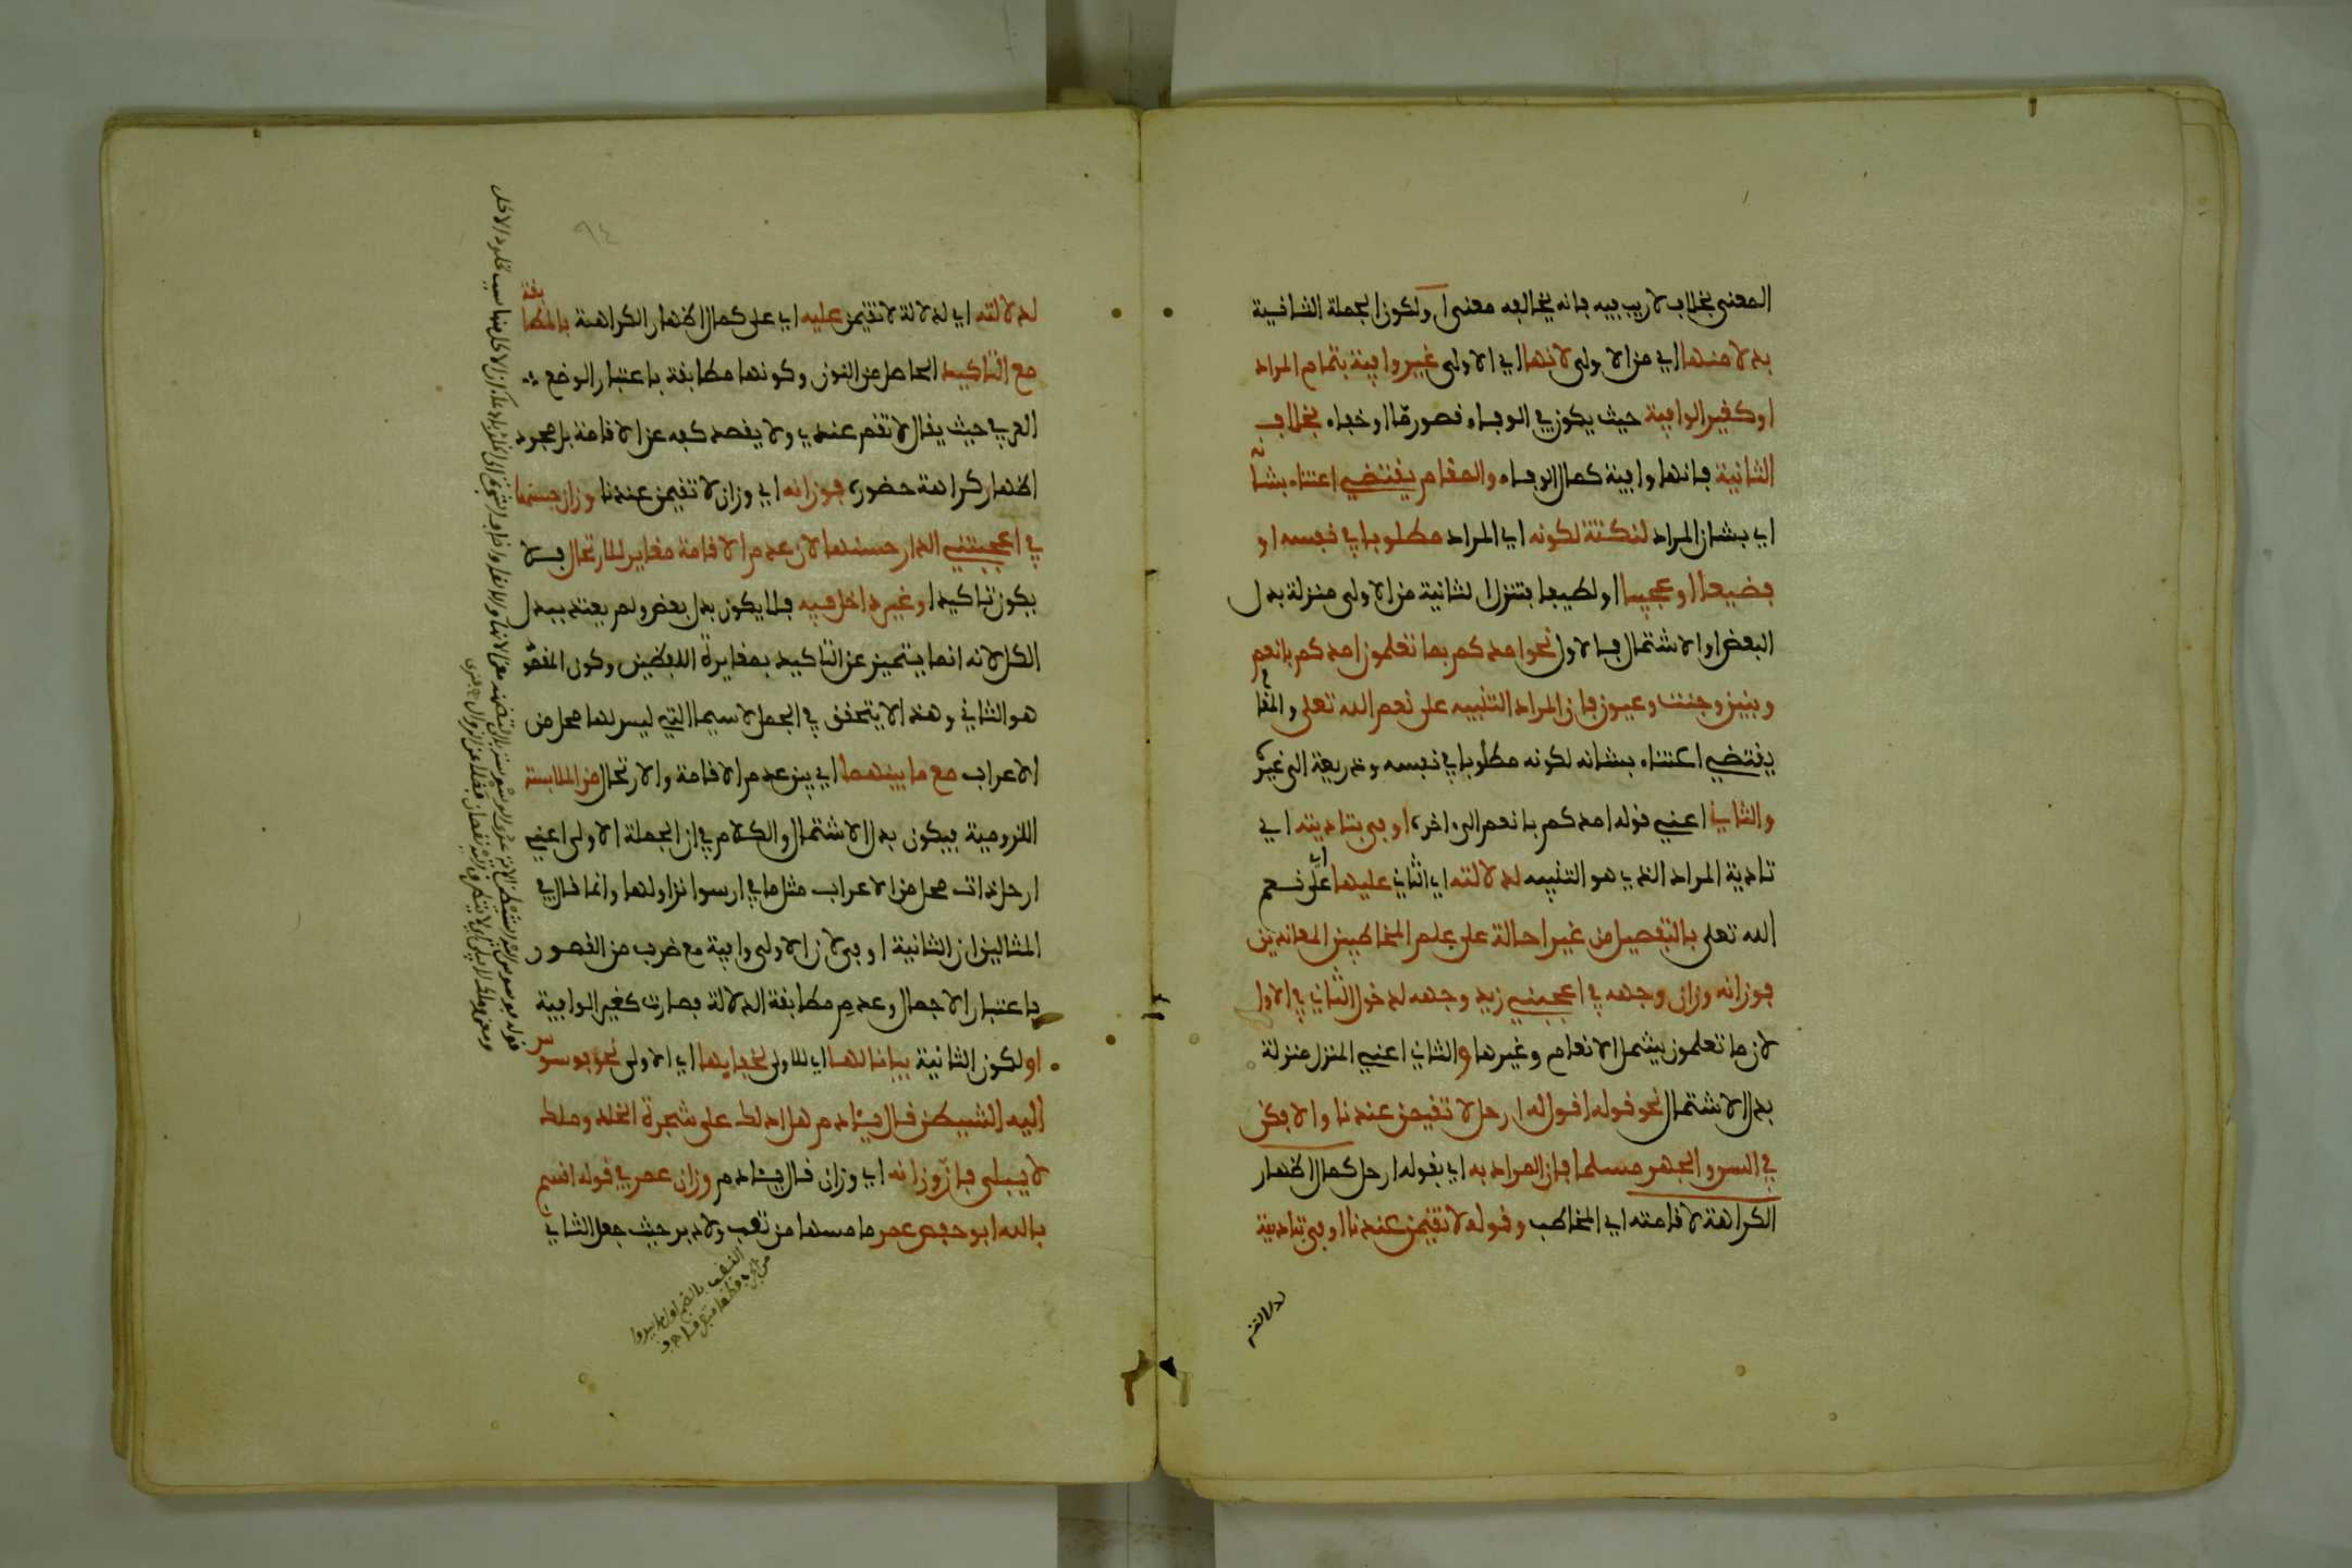 المعنى بخلاف لا ريب فيه فانه يخالفه معنى او لكون الجملة الثانية
بدلا منها اي من الاولى لانها اي الاولى غير وافية بتمام المراد
او كغير الوافية حيث يكون في الوفاء قصور مّا او خفاء بخلاف
الثانية فانها وافية كمال الوفاء والمقام يقتضي اعتناء بشأ
اي بشان المراد لنكتة لكونه اي المراد مطلوبا في نفسه او
فضيعا او عجيبا او لطيفا فتنزل الثانية من الاولى منزلة بدل
البعض او الاشتمال فالاول نحو امدكم بما تعلمون امدكم بانعم
وبنين وجنت وعيون فان المراد التنبيه على نعم الله تعلى والمقا
يقتضي اعتناء بشانه لكونه مطلوبا في نفسه وذريعة الى غيره
والثاني اعني قوله امدكم بانعم الى ءاخره اوفى بتاديته اي
تادية المراد الذي هو التنبيه لدلالته اي الثاني عليها اي على نعم
الله تعلى بالتفصيل من غير احالة على علم المخاطبين المعاندين
فوزانه وزان وجهه في اعجبني زيد وجهه لدخول الثاني في الاول
لان ما تعلمون يشمل الانعام وغيرها والثاني اعني المنزل منزلة
بدل الاشتمال نحو قوله اقول له ارحل لا تقيمن عندنا والا فكن
في السر والجهر مسلما فان المراد به اي بقوله ارحل كمال اظهار
الكراهة لاقامته اي المخاطب وقوله لا تقيمن عندنا اوفى بتادية
لدلالته
٩٤
لدلالته اي لدلالة لا تقيمن عليه اي على كمال اظهار الكراهة بالمطابقة
مع التاكيد الحاصل من النون وكونها مطابقة باعتبار الوضع
العرفي حيث يقال لا تقم عندي ولا يقصد كفه عن الاقامة بل مجرد
اظهار كراهة حضوره فوزانه اي وزان لا تقيمن عندنا وزان حسنها
في اعجبتني الدار حسنها لان عدم الاقامة مغاير للارتحال فلا
يكون تاكيدا وغير داخل فيه فلا يكون بدل بعض ولم يعتد ببدل
الكل لانه انما يتميز عن التاكيد بمغايرة اللفظين وكون المقصو
هو الثاني وهذا لا يتحقق في الجمل لا سيما التي ليس لها محل من
الاعراب مع ما بينهما اي بين عدم الاقامة والارتحال من الملابسة
اللزومية فيكون بدل الاشتمال والكلام في ان الجملة الاولى اعني
ارحل ذات محل من الاعراب مثل ما في ارسوا نزاولها وانما قال في
المثالين ان الثانية اوفى لان الاولى وافية مع ضرب من القصور
باعتبار الاجمال وعدم مطابقة الدلالة فصارت كغير الوافية
او لكون الثانية بيانا لها اي للاولى لخفايها اي الاولى نحو فوسوس
اليه الشيطن قال يئادم هل ادلك على شجرة الخلد وملك
لا يبلى فان وزانه اي وزان قال يئادم وزان عمر في قوله اقسم
بالله ابو حفص عمر ما مسها من نقب ولا دبر حيث جعل الثاني